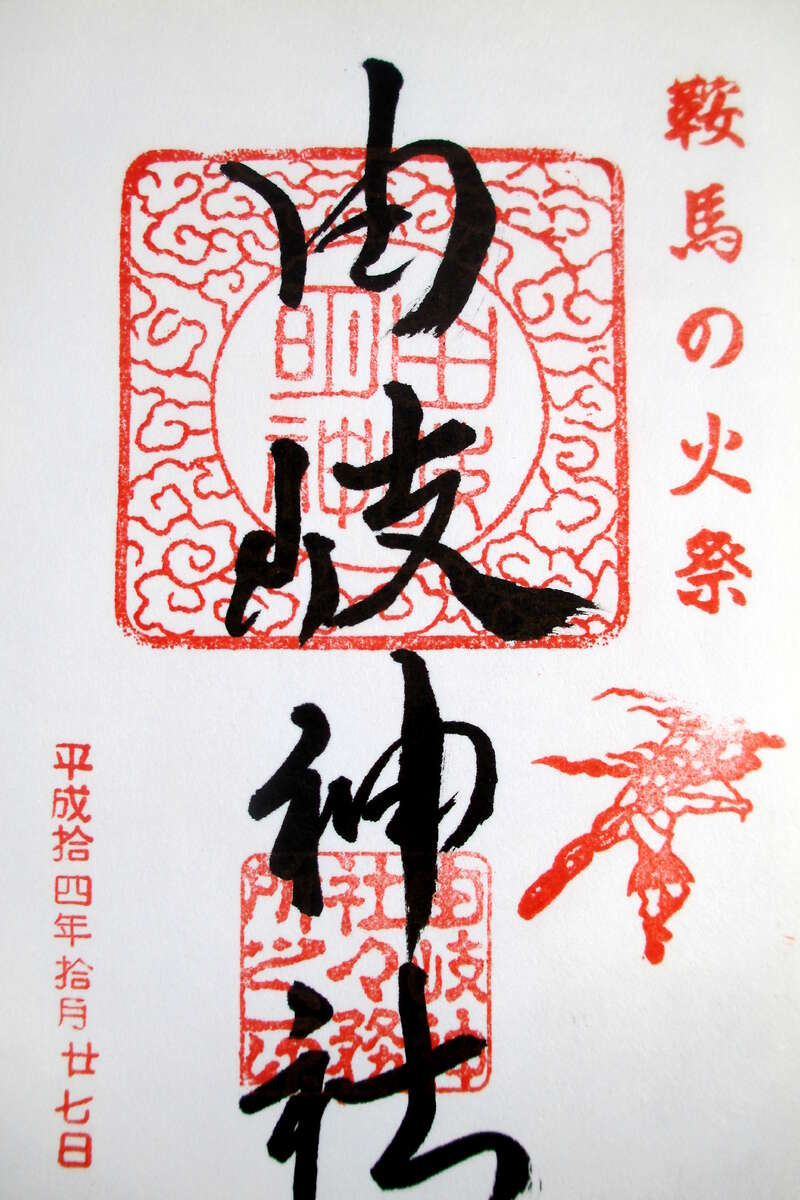 鞍馬の火祭
由岐神社
由岐
明神
由岐神
社々務
所之印
平成拾四年拾月廿七日